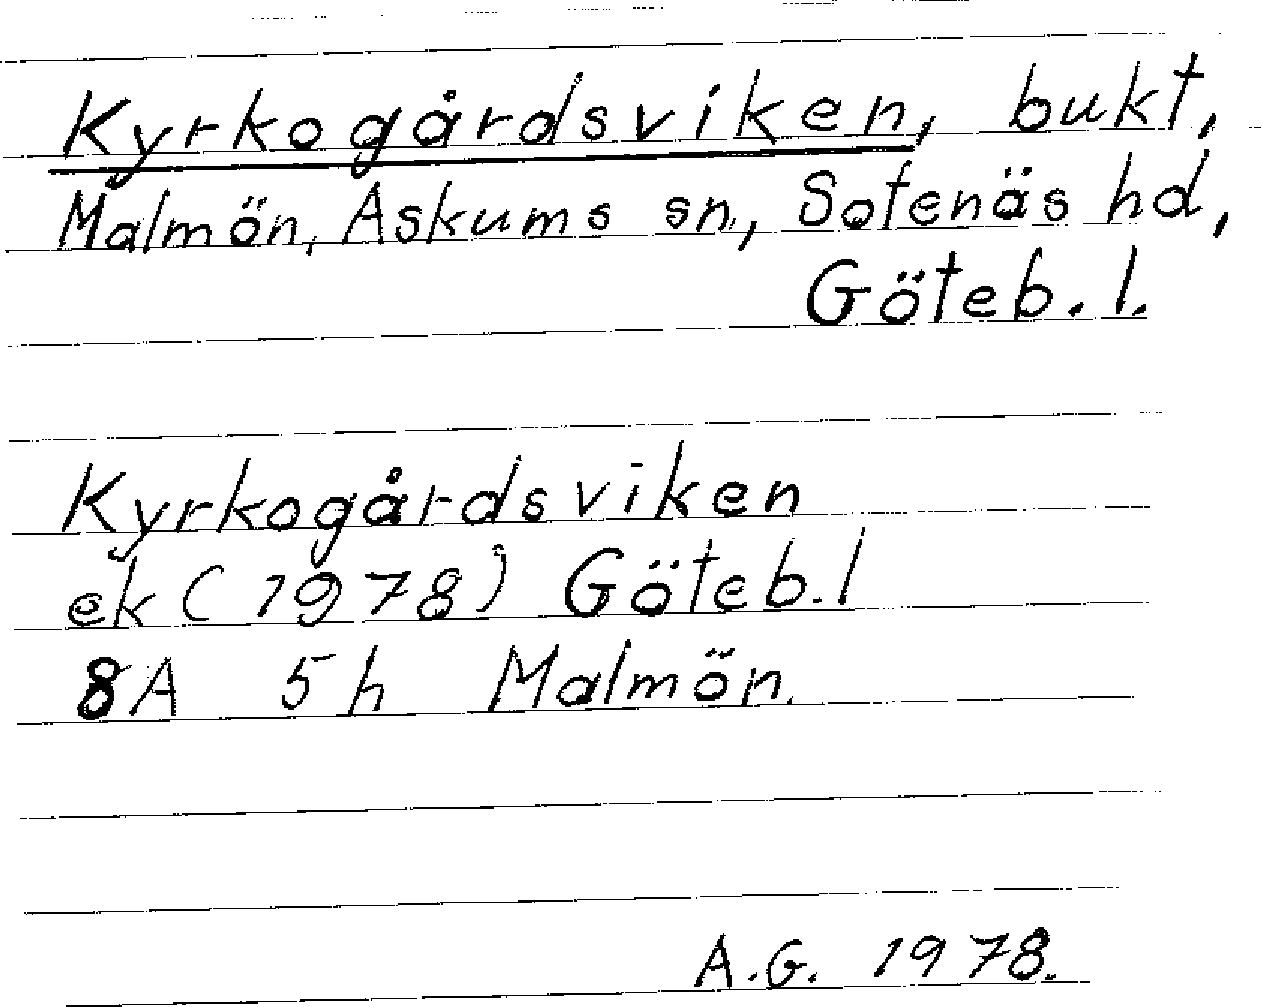 Kyrkogårdsviken, bukt,
Malmön, Askums sn, Sotenäs hd,
Göteb. l.
Kyrkogårdsviken
ek (1978) Göteb. l
8A 5h Malmön.
A.G. 1978.